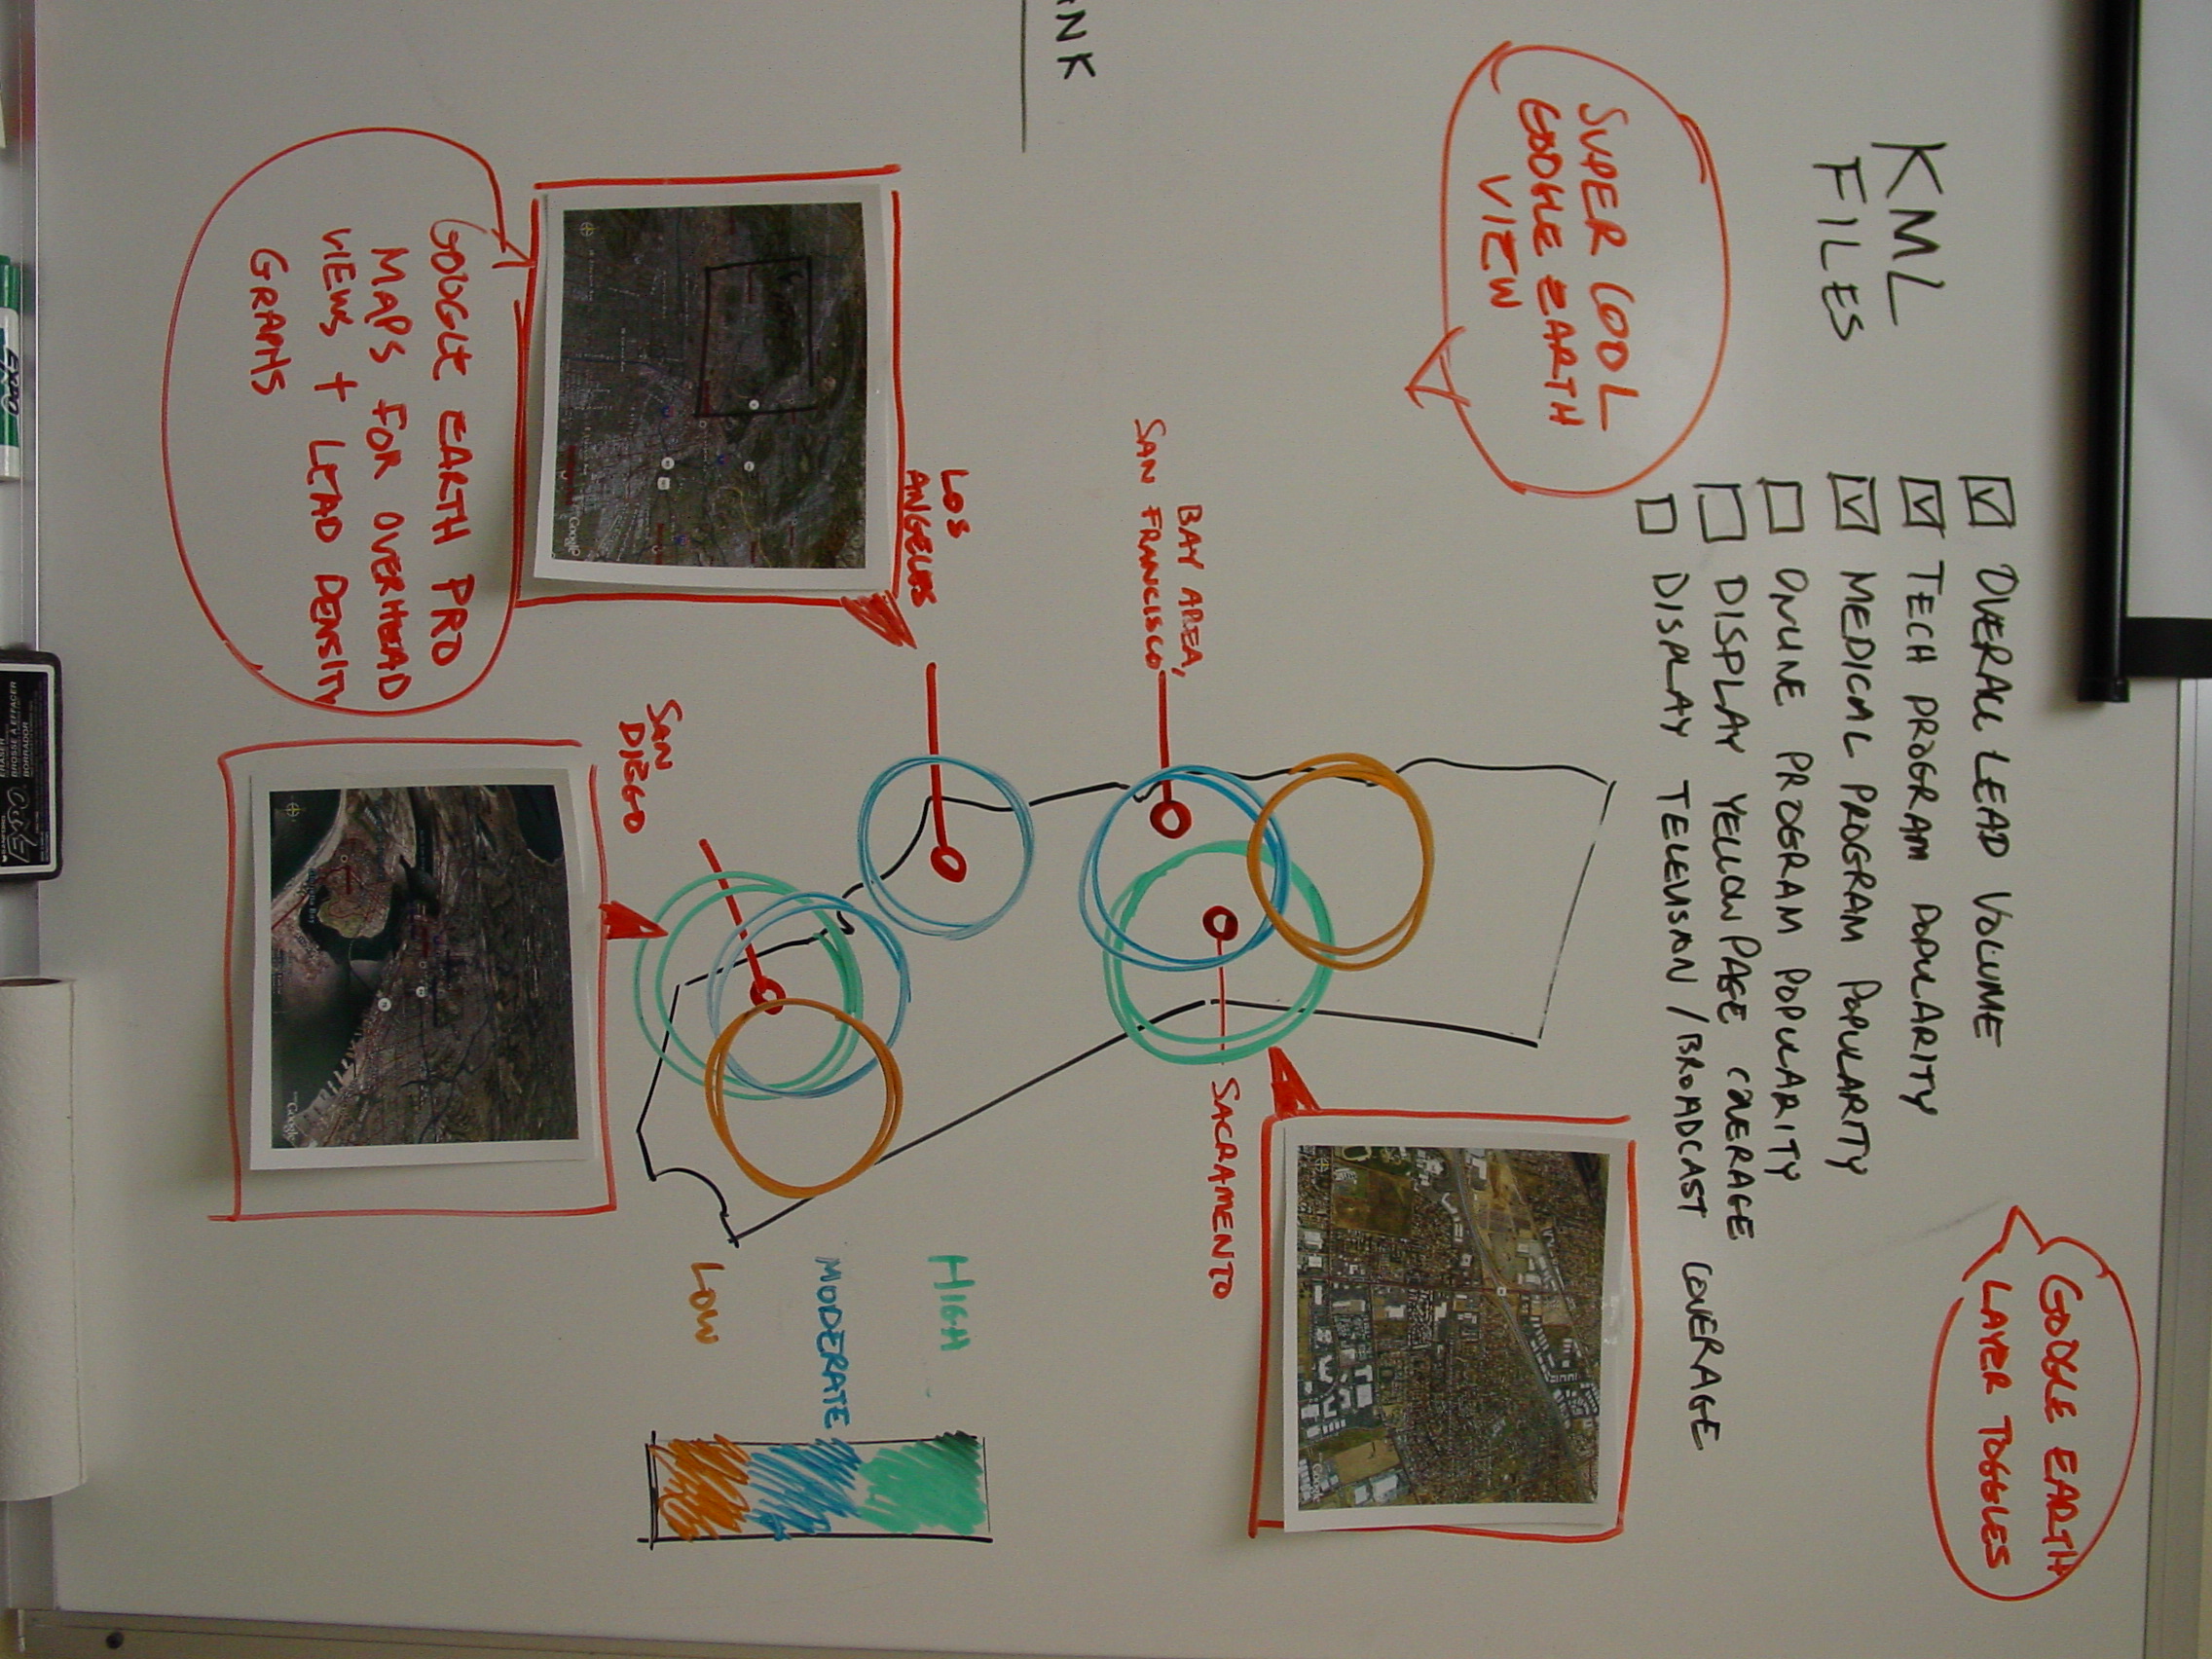 KML
FILES
☑ OVERALL LEAD VOLUME
☑ TECH PROGRAM POPULARITY
☑ MEDICAL PROGRAM POPULARITY
☐ ONLINE PROGRAM POPULARITY
☐ DISPLAY YELLOW PAGE COVERAGE
☐ DISPLAY TELEVISION / BROADCAST COVERAGE
GOOGLE EARTH
LAYER TOGGLES
SUPER COOL
GOOGLE EARTH
VIEW
BAY AREA,
SAN FRANCISCO
SACRAMENTO
LOS
ANGELES
SAN
DIEGO
HIGH
MODERATE
LOW
GOOGLE EARTH PRO
MAPS FOR OVERHEAD
VIEWS + LEAD DENSITY
GRAPHS
Google
Google
Google
EXPO
ERASER
BROSSE À EFFACER
BORRADOR